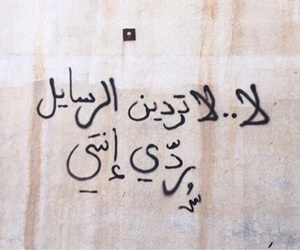 لا..لا تردين الرسايل
رُدِّي إنتي